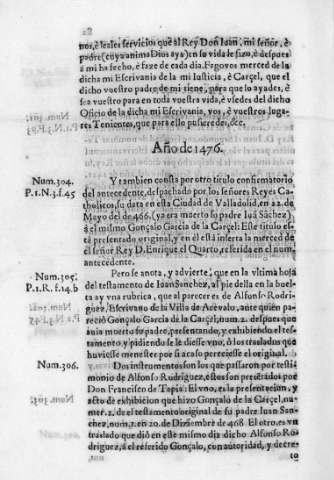 28
nos, è leales servicios que al Rey Don Iuan, mi señor, è
padre (cuya anima Dios aya) en su vida le fizo, è despues
à mi ha fecho, è faze de cada dia. Fagovos merced de la
dicha mi Escrivania de la mi Iusticia, è Carçel, que el
dicho vuestro padre de mi tiene, para que lo ayades, è
sea vuestro para en toda vuestra vida, è vsedes del dicho
Oficio de la dicha mi Escrivania, vos, è vuestros Lugares
Tenientes, que para ello pusieredes, &c.
Año de 1476.
Num. 304.
P. 1. N. 3. f. 45
Y tambien consta por otro titulo confirmatorio
del antecedente, despachado por los señores Reyes Catholicos,
su data en esta Ciudad de Valladolid, en 22. de
Mayo del de 466. (ya era muerto su padre Iuã Sãchez)
à el mismo Gonçalo Garcia de la Carçel: Este titulo està
presentado original, y en el està inserta la merced del
señor Rey D. Enrique el Quarto, referida en el num.
antecedente.
Num. 305.
P. 1. R. f. 14. b
Pero se anota, y advierte, que en la vltima hoja
del testamento de Iuan Sanchez, al pie della en la buelta
ay vna rubrica, que al parecer es de Alfonso Rodriguez,
Escrivano de la Villa de Arevalo, ante quien pareciò
Gonçalo Garcia de la Carçel, num. 2. despues que
avia muerto su padre, presentando, y exhibiendo el testamento,
y pidiendo se le diesse vno, ò los traslados que
huviesse menester por si acaso pereciesse el original.
Num. 306.
Dos instrumentos son los que passaron por testimonio
de Alfonso Rodriguez, estos son presentados por
Don Francisco de Tapia: El vno, es la presentacion, y
acto de exhibicion que hizo Gonçalo de la Carçel, numer.
2. de el testamento original de su padre Iuan Sanchez,
num. 1. en 20. de Diziembre de 468. El otro, es vn
traslado que diò en este mismo dia dicho Alfonso Rodriguez
à el referido Gonçalo, con autoridad, y decreto